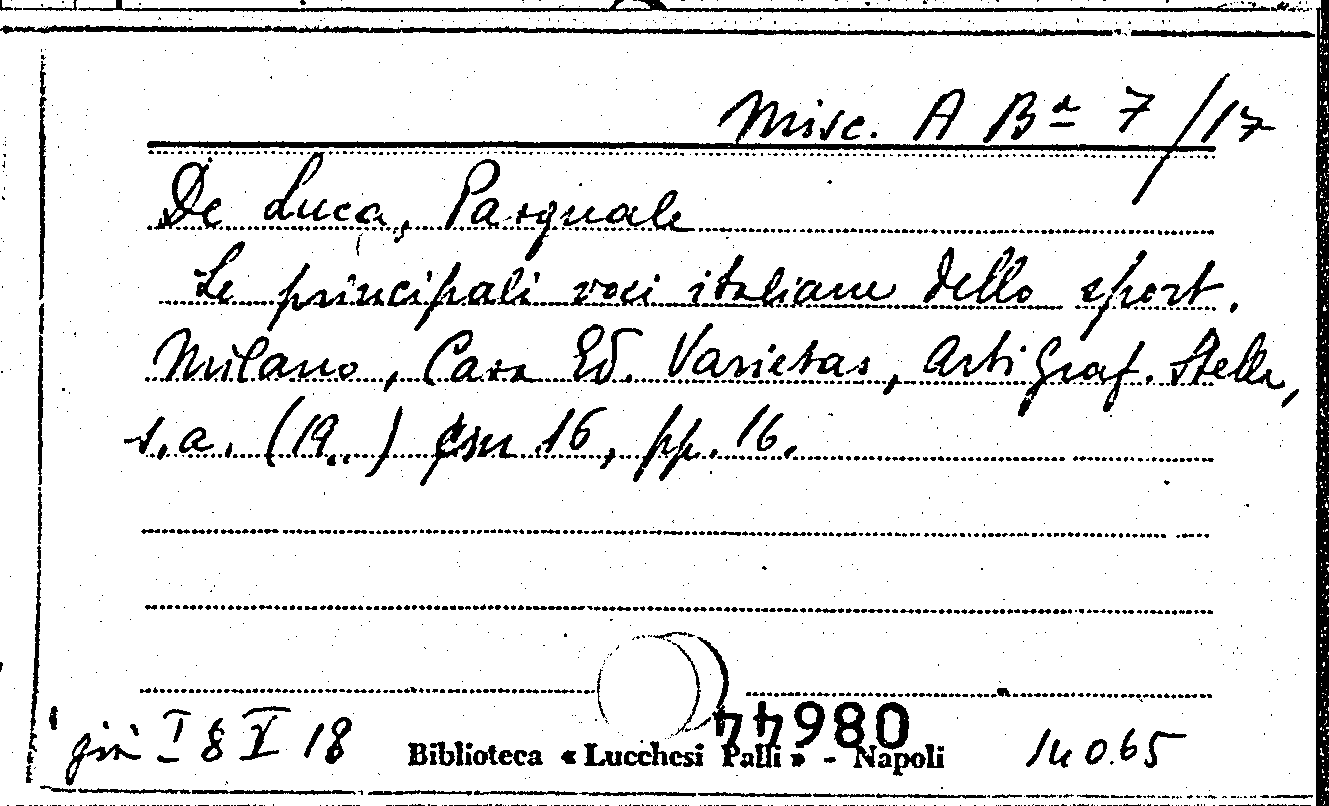 Misc. A Bª 7/17
De Luca, Pasquale
Le principali voci italiane dello sport.
Milano, Casa Ed. Varietas, Arti Graf. Stella,
s.a. (19..) in 16, pp. 16.
08644
già I 8 V 18
Biblioteca « Lucchesi Palli » - Napoli
14065